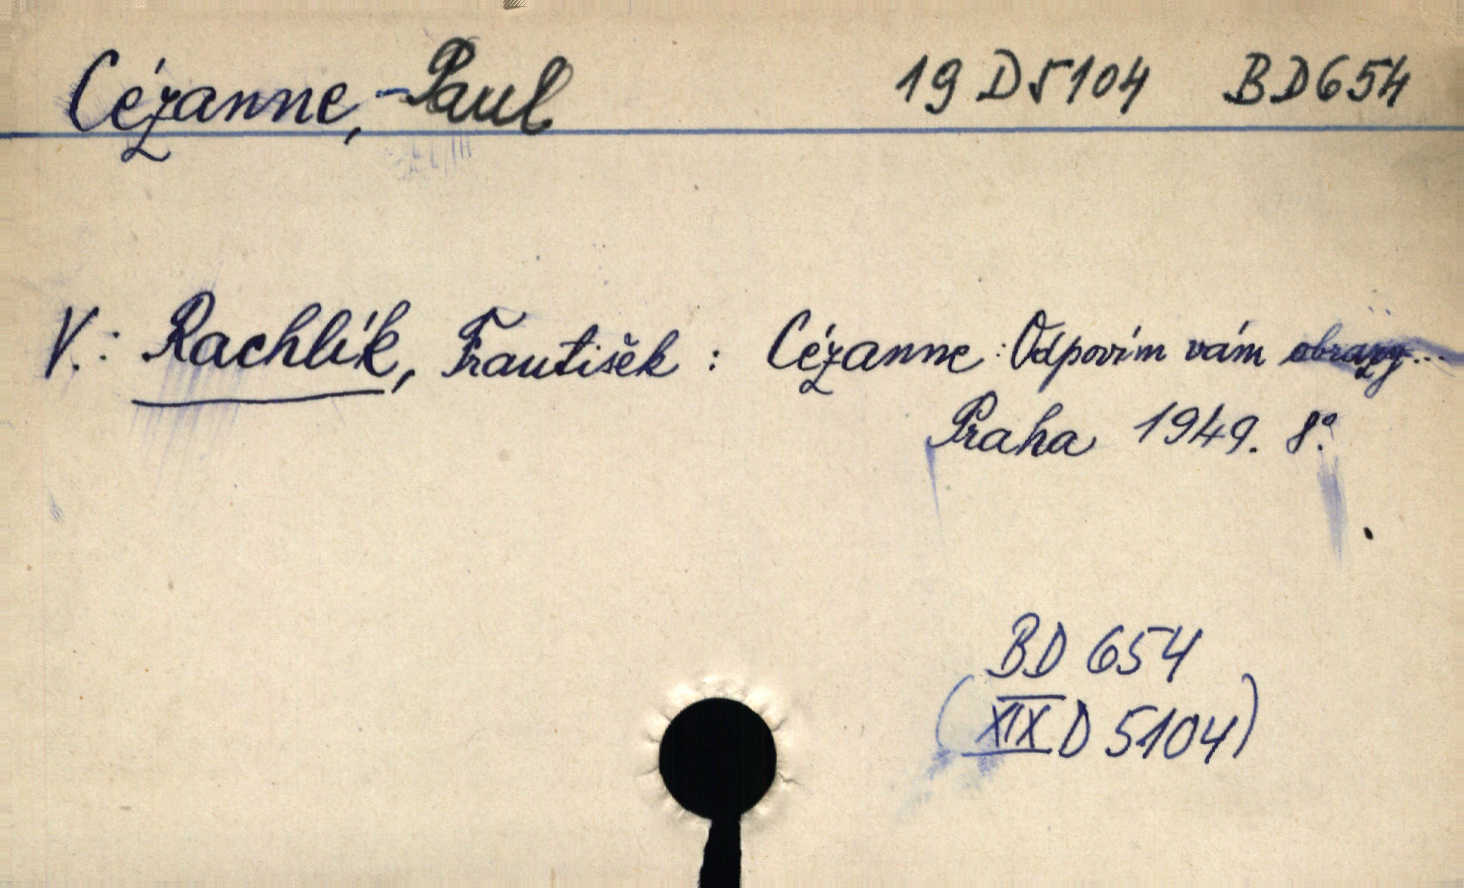 Cézanne, - Paul 19 D 5104 BD 654
V.: Rachlík, František : Cézanne : Odpovím vám obrazy...
Praha 1949. 8°.
BD 654
(XIX D 5104)